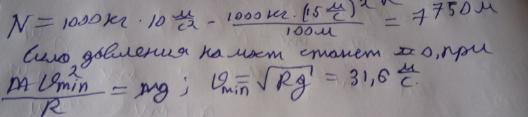 N = 1000кг · 10 м/с² - 1000кг · (15 м/с)² / 100м = 7750м
Сила давления на мост станет = 0, при
mv²min / R = mg ; vmin = √Rg = 31,6 м/с.